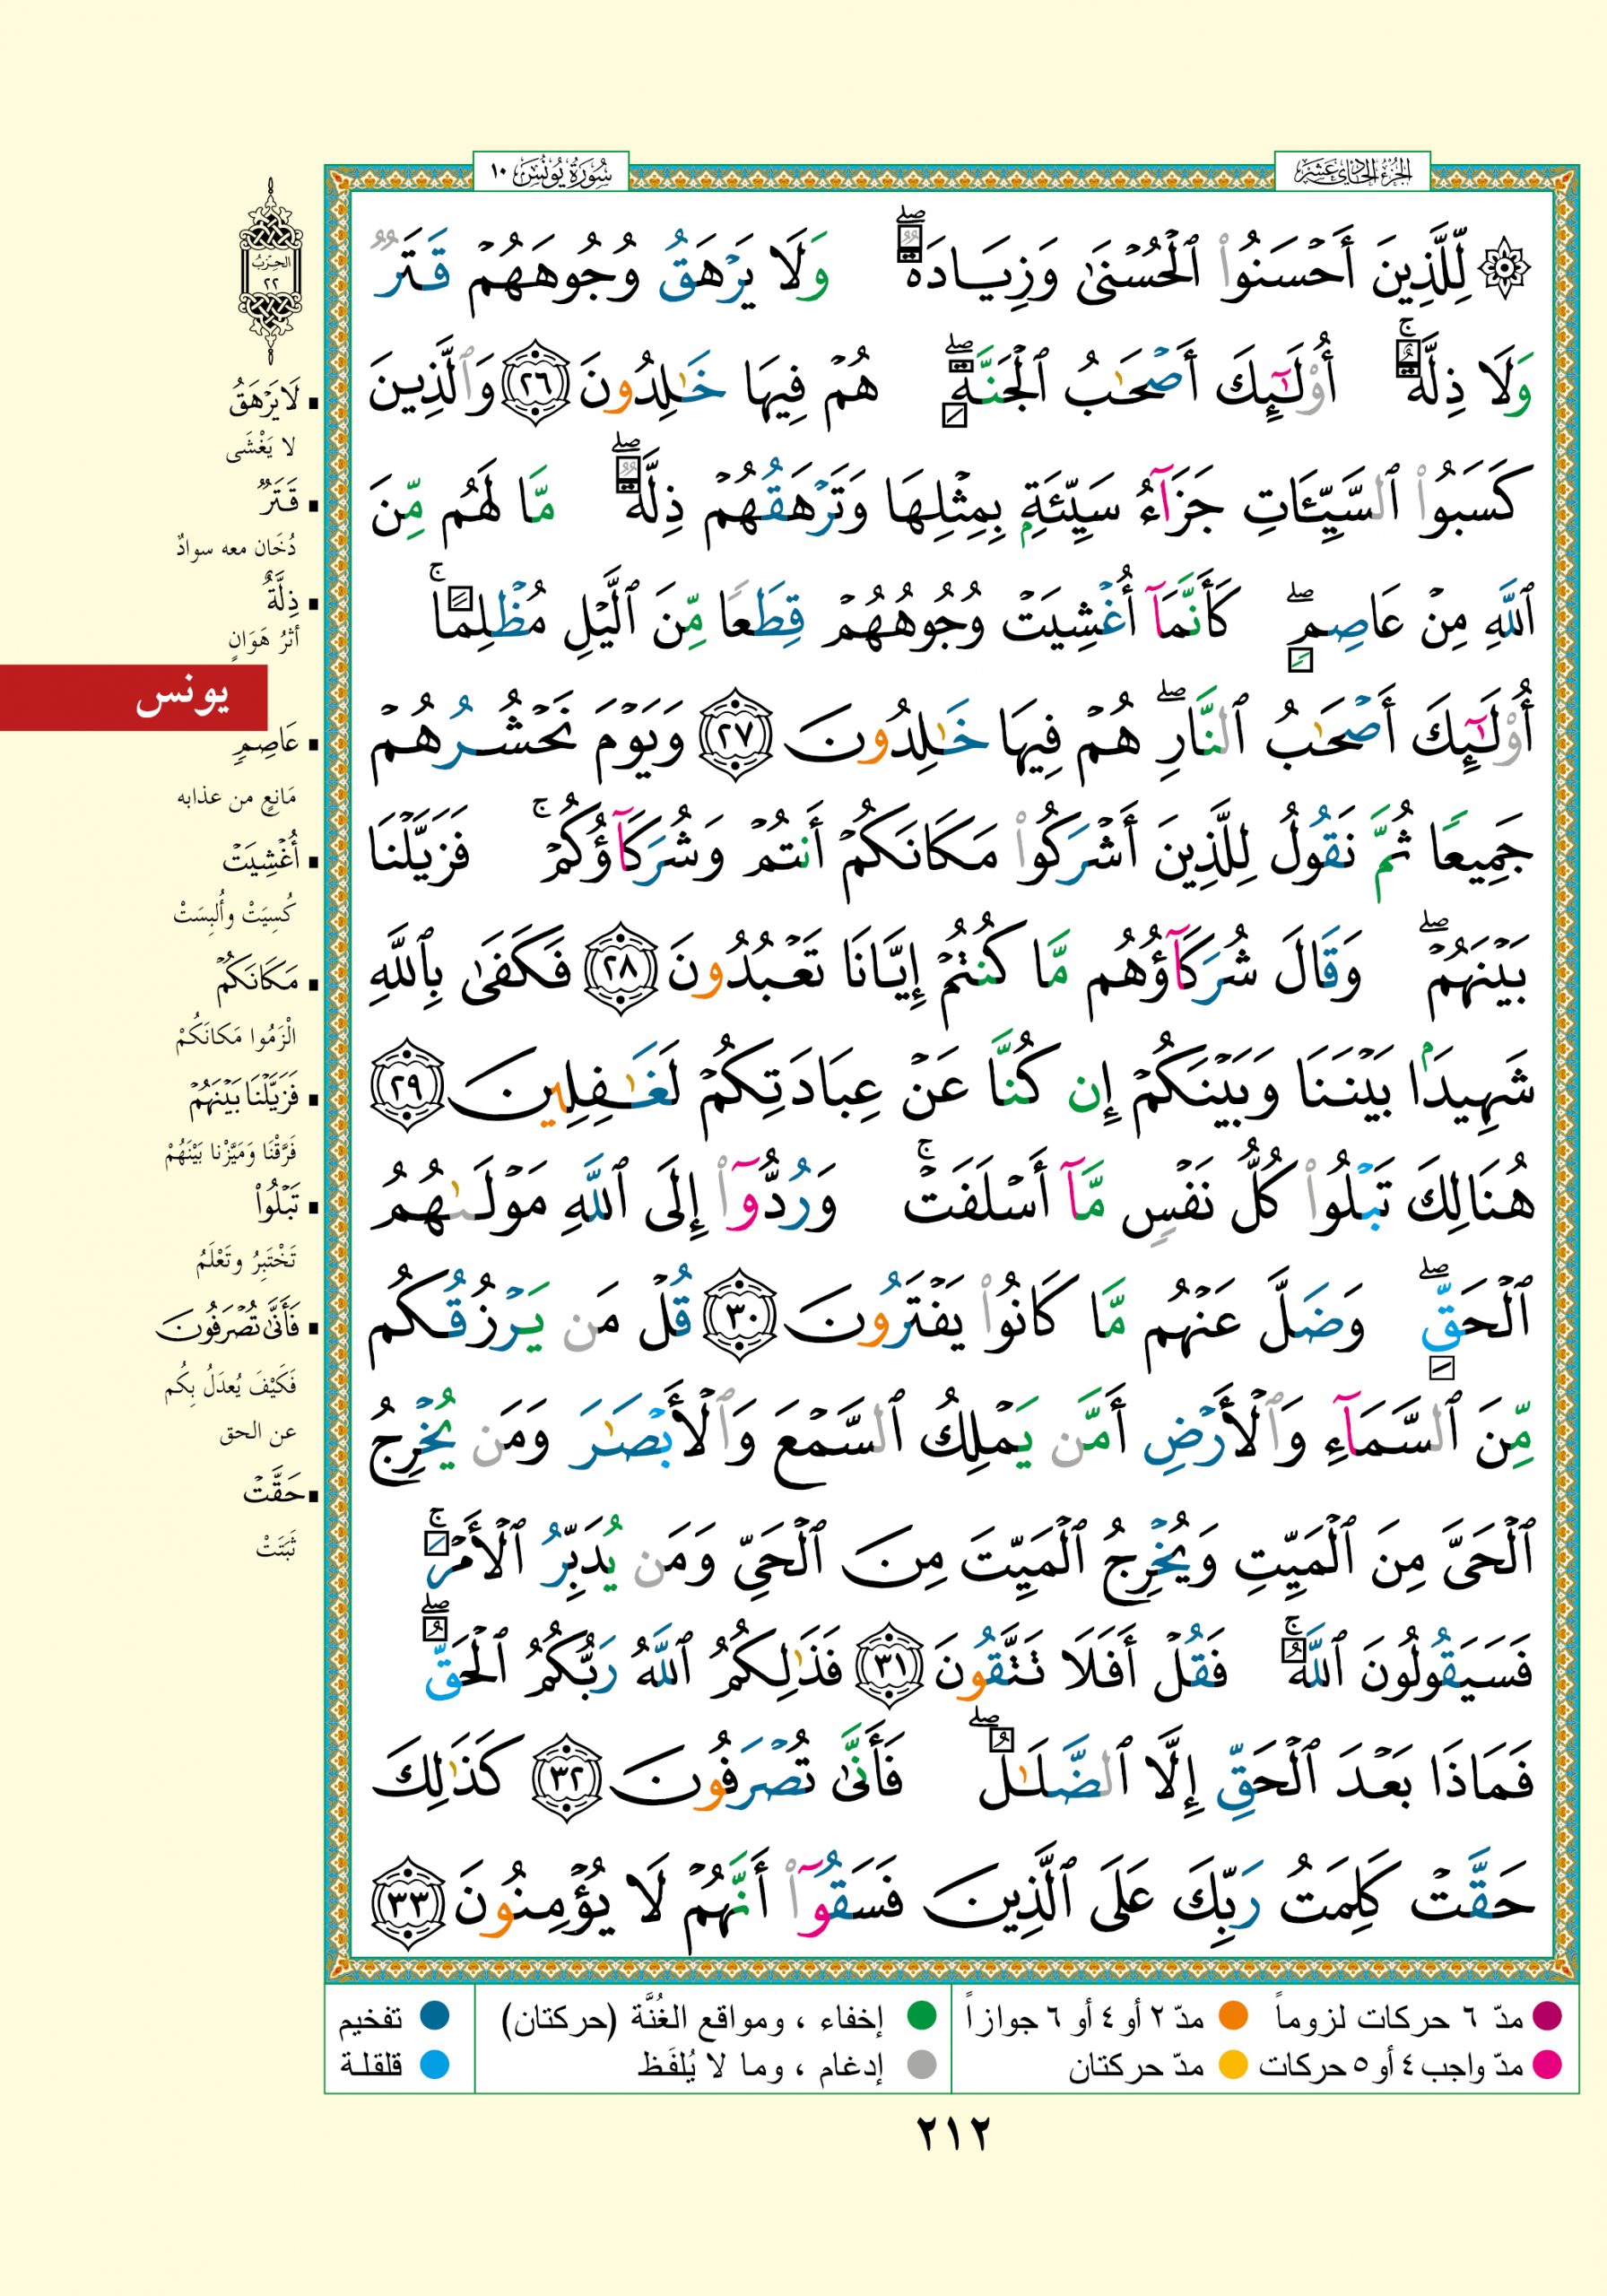 سُورَةُ يُونُسَ ١٠
الجُزْءُ الحَادِي عَشَرَ
۞ لِّلَّذِينَ أَحۡسَنُواْ ٱلۡحُسۡنَىٰ وَزِيَادَةٞۖ وَلَا يَرۡهَقُ وُجُوهَهُمۡ قَتَرٞ
وَلَا ذِلَّةٌۚ أُوْلَٰٓئِكَ أَصۡحَٰبُ ٱلۡجَنَّةِۖ هُمۡ فِيهَا خَٰلِدُونَ ٢٦ وَٱلَّذِينَ
كَسَبُواْ ٱلسَّيِّـَٔاتِ جَزَآءُ سَيِّئَةِۭ بِمِثۡلِهَا وَتَرۡهَقُهُمۡ ذِلَّةٞۖ مَّا لَهُم مِّنَ
ٱللَّهِ مِنۡ عَاصِمٖۖ كَأَنَّمَآ أُغۡشِيَتۡ وُجُوهُهُمۡ قِطَعٗا مِّنَ ٱلَّيۡلِ مُظۡلِمًاۚ
أُوْلَٰٓئِكَ أَصۡحَٰبُ ٱلنَّارِۖ هُمۡ فِيهَا خَٰلِدُونَ ٢٧ وَيَوۡمَ نَحۡشُرُهُمۡ
جَمِيعٗا ثُمَّ نَقُولُ لِلَّذِينَ أَشۡرَكُواْ مَكَانَكُمۡ أَنتُمۡ وَشُرَكَآؤُكُمۡۚ فَزَيَّلۡنَا
بَيۡنَهُمۡۖ وَقَالَ شُرَكَآؤُهُم مَّا كُنتُمۡ إِيَّانَا تَعۡبُدُونَ ٢٨ فَكَفَىٰ بِٱللَّهِ
شَهِيدَۢا بَيۡنَنَا وَبَيۡنَكُمۡ إِن كُنَّا عَنۡ عِبَادَتِكُمۡ لَغَٰفِلِينَ ٢٩
هُنَالِكَ تَبۡلُواْ كُلُّ نَفۡسٖ مَّآ أَسۡلَفَتۡۚ وَرُدُّوٓاْ إِلَى ٱللَّهِ مَوۡلَىٰهُمُ
ٱلۡحَقِّۖ وَضَلَّ عَنۡهُم مَّا كَانُواْ يَفۡتَرُونَ ٣٠ قُلۡ مَن يَرۡزُقُكُم
مِّنَ ٱلسَّمَآءِ وَٱلۡأَرۡضِ أَمَّن يَمۡلِكُ ٱلسَّمۡعَ وَٱلۡأَبۡصَٰرَ وَمَن يُخۡرِجُ
ٱلۡحَيَّ مِنَ ٱلۡمَيِّتِ وَيُخۡرِجُ ٱلۡمَيِّتَ مِنَ ٱلۡحَيِّ وَمَن يُدَبِّرُ ٱلۡأَمۡرَۚ
فَسَيَقُولُونَ ٱللَّهُۚ فَقُلۡ أَفَلَا تَتَّقُونَ ٣١ فَذَٰلِكُمُ ٱللَّهُ رَبُّكُمُ ٱلۡحَقُّۖ
فَمَاذَا بَعۡدَ ٱلۡحَقِّ إِلَّا ٱلضَّلَٰلُۖ فَأَنَّىٰ تُصۡرَفُونَ ٣٢ كَذَٰلِكَ
حَقَّتۡ كَلِمَتُ رَبِّكَ عَلَى ٱلَّذِينَ فَسَقُوٓاْ أَنَّهُمۡ لَا يُؤۡمِنُونَ ٣٣
الحِزْبُ
٢٢
لَا يَرۡهَقُ
لا يَغْشَى
قَتَرٞ
دُخَان معه سوادٌ
ذِلَّةٌ
أثرُ هَوَانٍ
يونس
عَاصِمٖ
مَانِعٍ من عذابه
أُغۡشِيَتۡ
كُسِيَتْ وأُلبِسَتْ
مَكَانَكُمۡ
الْزَمُوا مَكانَكُمْ
فَزَيَّلۡنَا بَيۡنَهُمۡ
فَرَّقْنَا وَمَيَّزْنا بَيْنَهُمْ
تَبۡلُواْ
تَخْتَبِرُ وتَعْلَمُ
فَأَنَّىٰ تُصۡرَفُونَ
فَكَيْفَ يُعدَلُ بِكُم
عن الحق
حَقَّتۡ
ثَبَتَتْ
مدّ ٦ حركات لزوماً
مدّ ٢ أو ٤ أو ٦ جوازاً
إخفاء ، ومواقع الغُنَّة (حركتان)
تفخيم
مدّ واجب ٤ أو ٥ حركات
مدّ حركتان
إدغام ، وما لا يُلفَظ
قلقلة
٢١٢